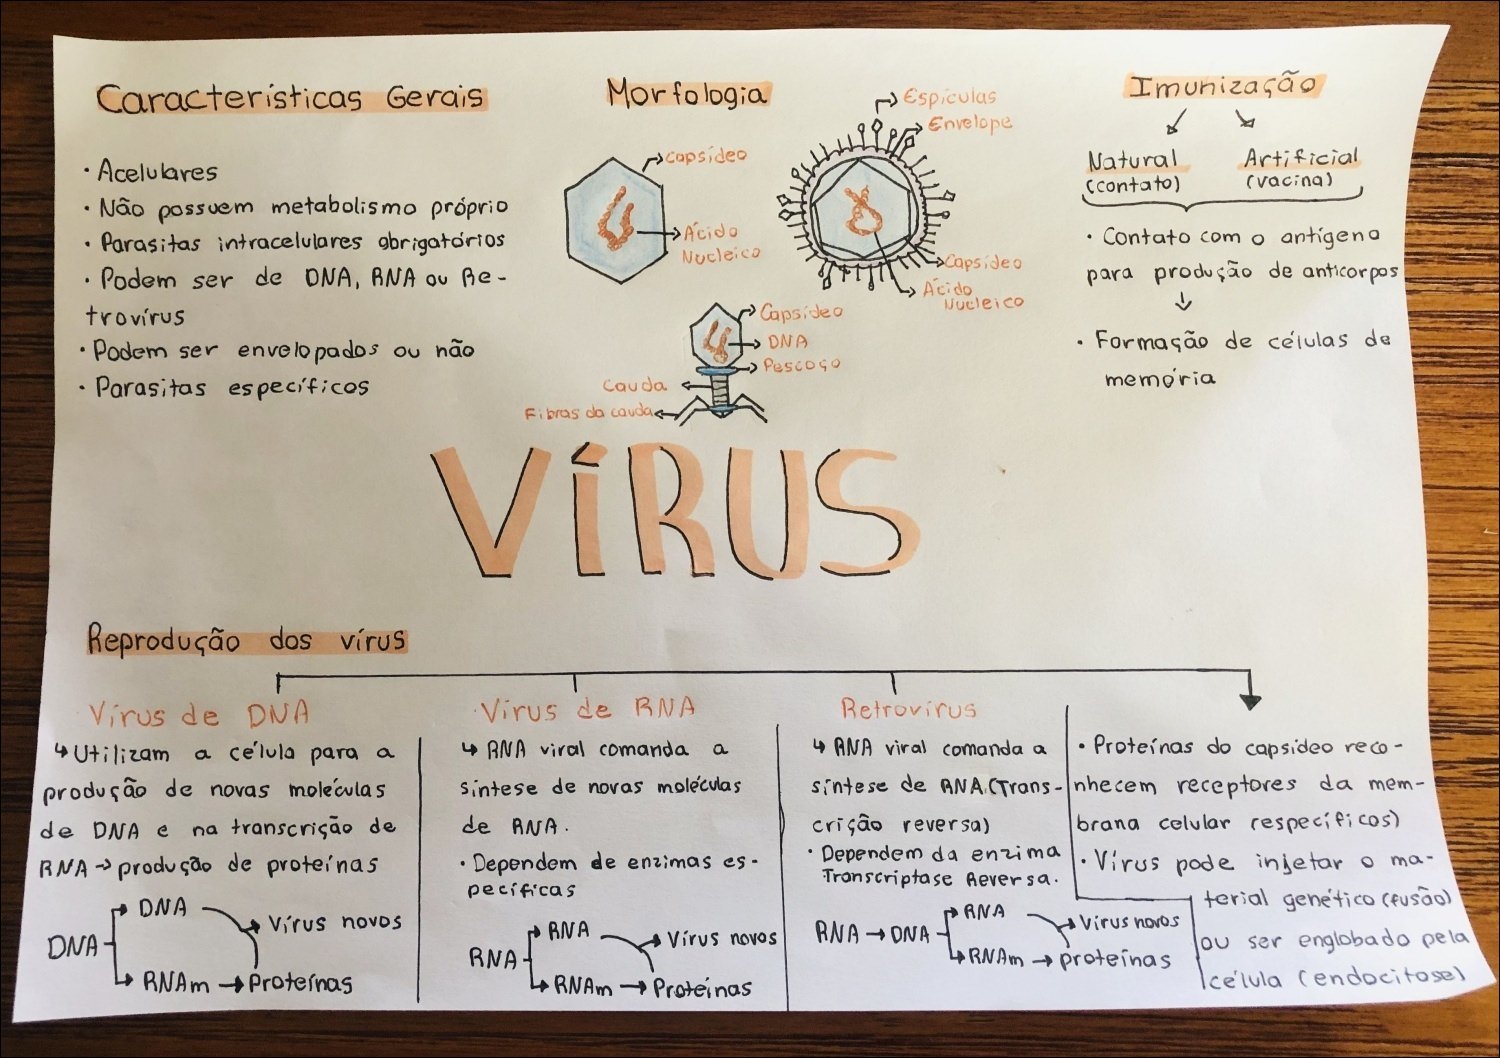 Características Gerais
· Acelulares
· Não possuem metabolismo próprio
· Parasitas intracelulares obrigatórios
· Podem ser de DNA, RNA ou Re-
trovírus
· Podem ser envelopados ou não
· Parasitas específicos
Morfologia
Capsídeo
Ácido
Nucleico
Espículas
Envelope
Capsídeo
Ácido
Nucleico
Capsídeo
DNA
Pescoço
Cauda
Fibras da cauda
Imunização
Natural
(contato)
Artificial
(vacina)
· Contato com o antígeno
para produção de anticorpos
↓
· Formação de células de
memória
VÍRUS
Reprodução dos vírus
Vírus de DNA
↳ Utilizam a célula para a
produção de novas moléculas
de DNA e na transcrição de
RNA → produção de proteínas
DNA
DNA
Vírus novos
RNAm → Proteínas
Vírus de RNA
↳ RNA viral comanda a
síntese de novas moléculas
de RNA.
· Dependem de enzimas es-
pecíficas
RNA
RNA
Vírus novos
RNAm → Proteínas
Retrovírus
↳ RNA viral comanda a
síntese de RNA (Trans-
crição reversa)
· Dependem da enzima
Transcriptase Reversa.
RNA → DNA
RNA
Vírus novos
RNAm → proteínas
· Proteínas do capsídeo reco-
nhecem receptores da mem-
brana celular (específicos)
· Vírus pode injetar o ma-
terial genético (fusão)
ou ser englobado pela
célula (endocitose)